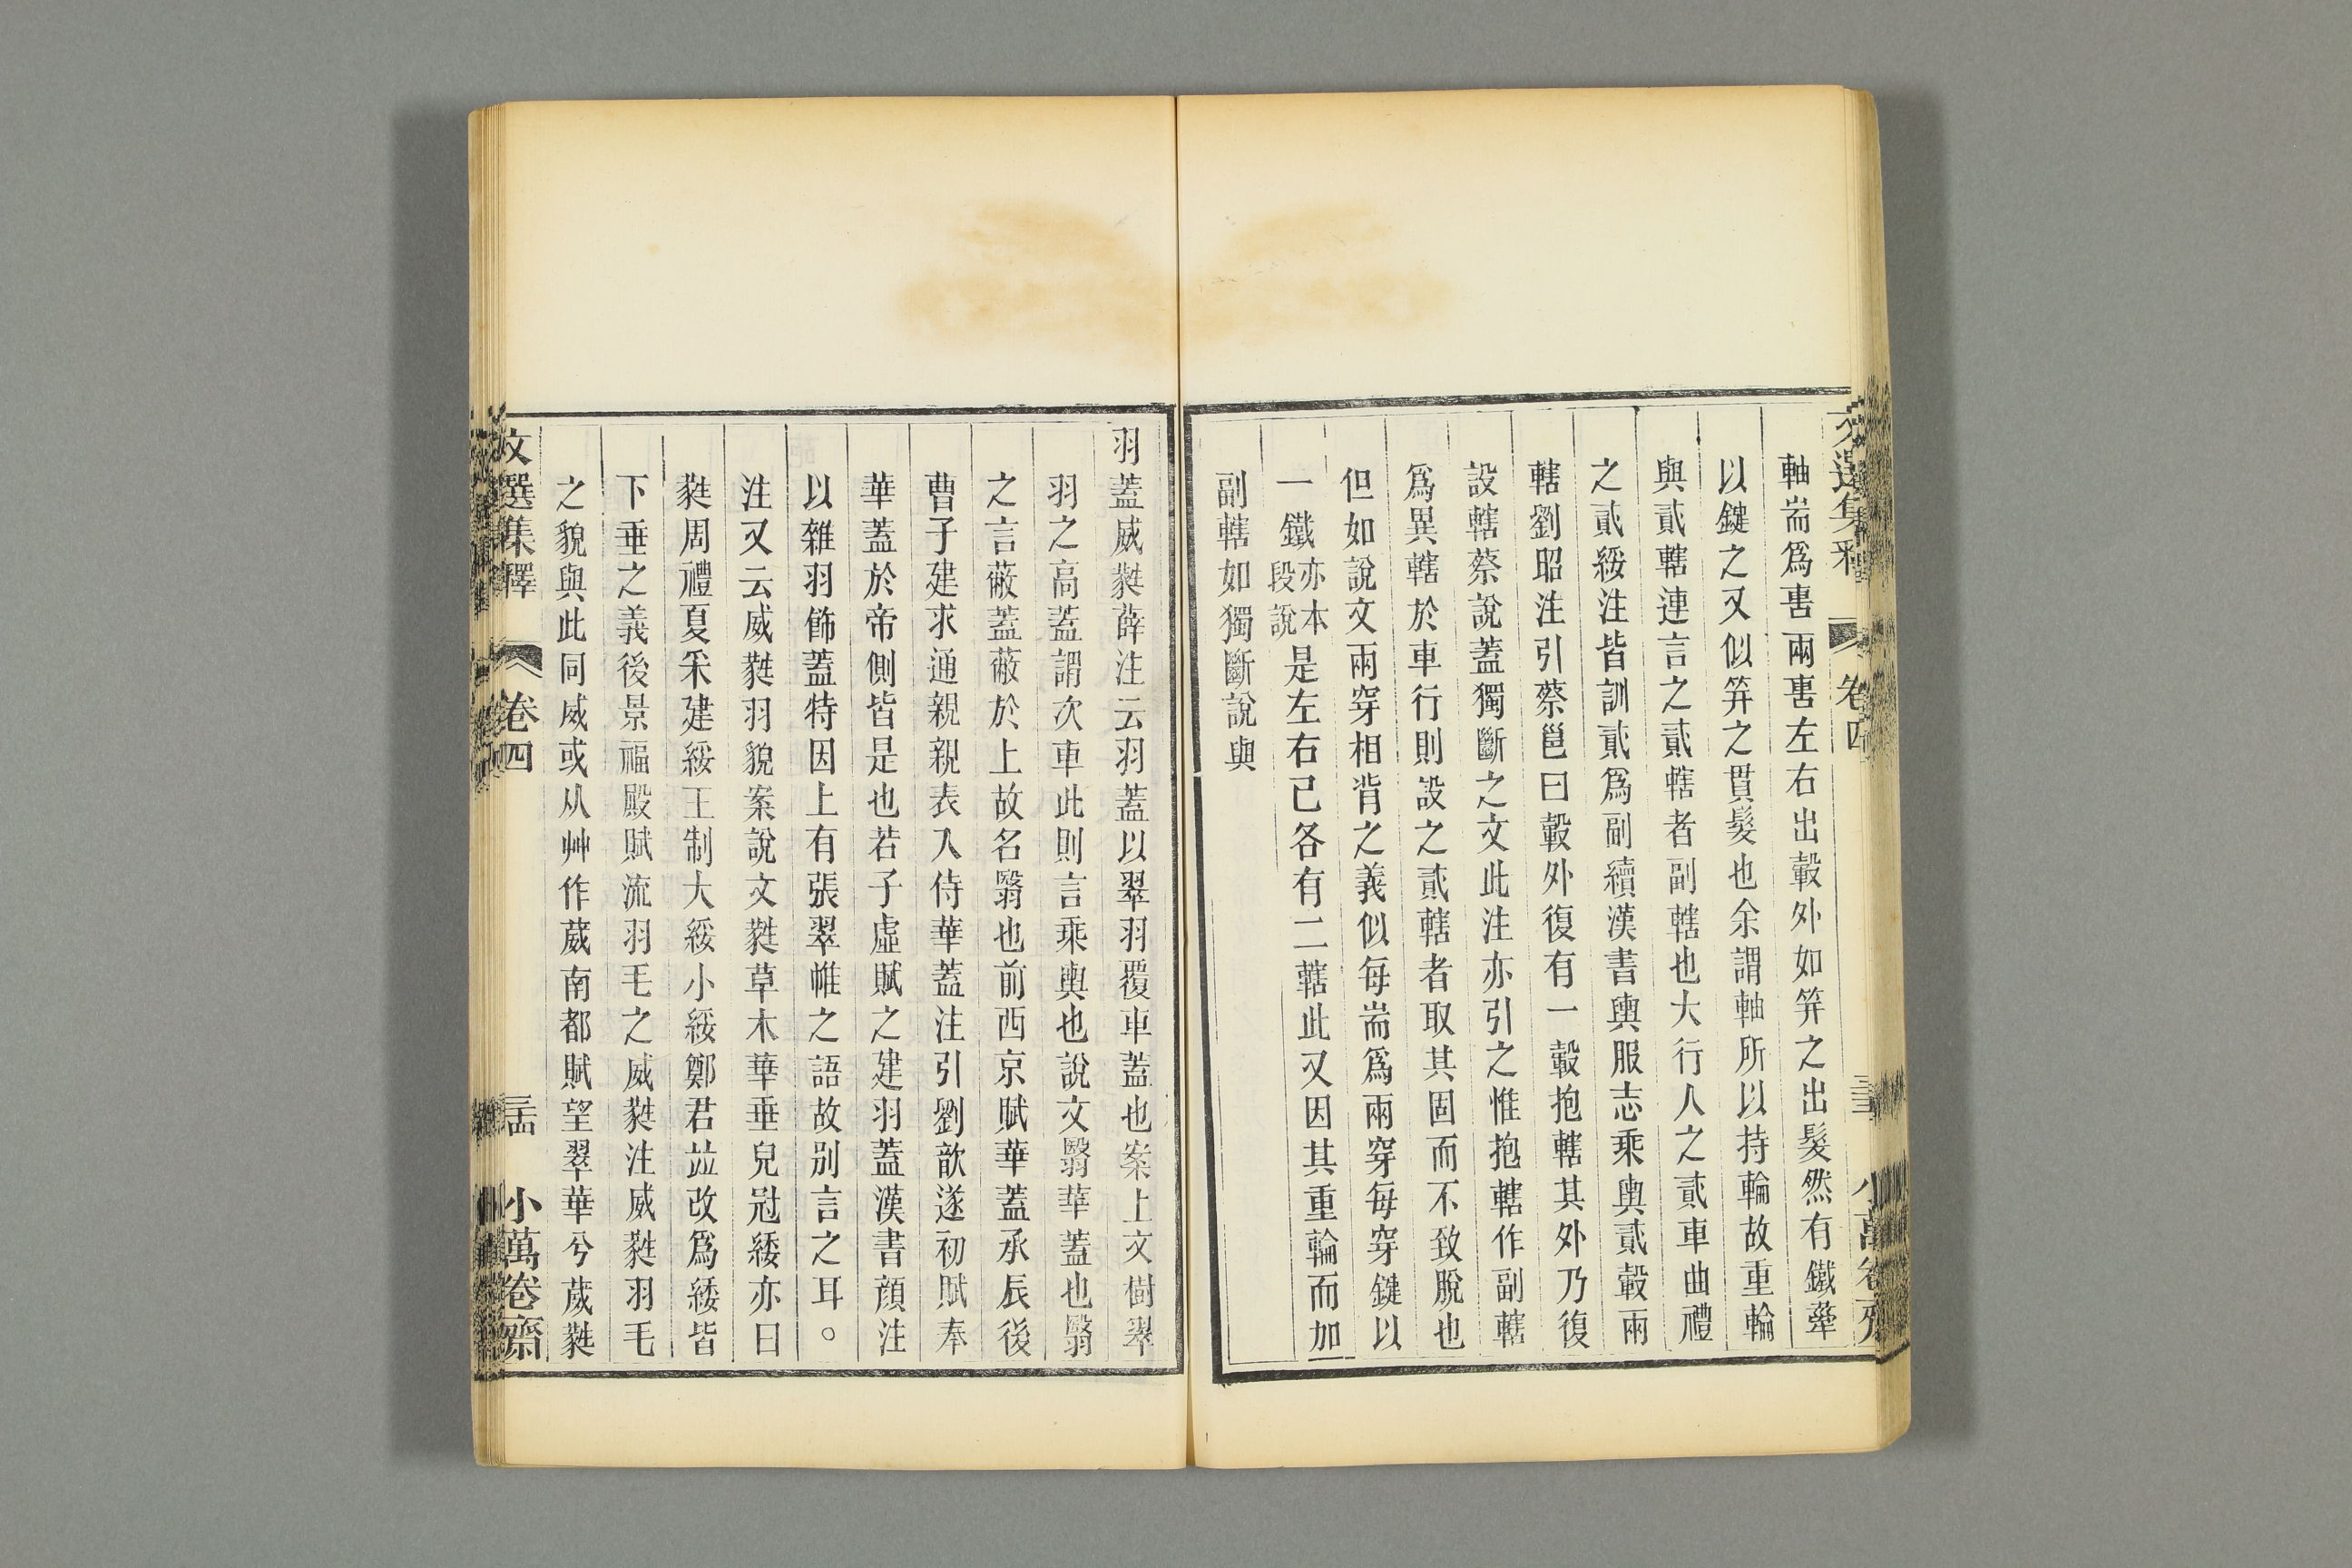 文選集釋 卷四 三三 小萬卷齋
軸耑爲軎兩軎左右出轂外如笄之出髮然有鐵舝
以鍵之又似笄之貫髮也余謂軸所以持輪故重輪
與貳轄連言之貳轄者副轄也大行人之貳車曲禮
之貳綏注皆訓貳爲副續漢書輿服志乘輿貳轂兩
轄劉昭注引蔡邕曰轂外復有一轂抱轄其外乃復
設轄蔡說蓋獨斷之文此注亦引之惟抱轄作副轄
爲異轄於車行則設之貳轄者取其固而不致脫也
但如說文兩穿相背之義似每耑爲兩穿每穿鍵以
一鐵亦本段說是左右已各有二轄此又因其重輪而加
副轄如獨斷說與
羽蓋威蕤薛注云羽蓋以翠羽覆車蓋也案上文樹翠
羽之高蓋謂次車此則言乘輿也說文翳華蓋也翳
之言蔽蓋蔽於上故名翳也前西京賦華蓋承辰後
曹子建求通親親表入侍華蓋注引劉歆遂初賦奉
華蓋於帝側皆是也若子虛賦之建羽蓋漢書顏注
以雜羽飾蓋特因上有張翠帷之語故別言之耳。
注又云威蕤羽貌案說文蕤草木華垂皃冠緌亦曰
蕤周禮夏采建綏王制大綏小綏鄭君竝改爲緌皆
下垂之義後景福殿賦流羽毛之威蕤注威蕤羽毛
之貌與此同威或从艸作葳南都賦望翠華兮葳蕤
文選集釋 卷四 三四 小萬卷齋